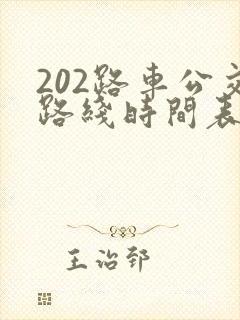 202路車公交
路綫時間表
王治郅